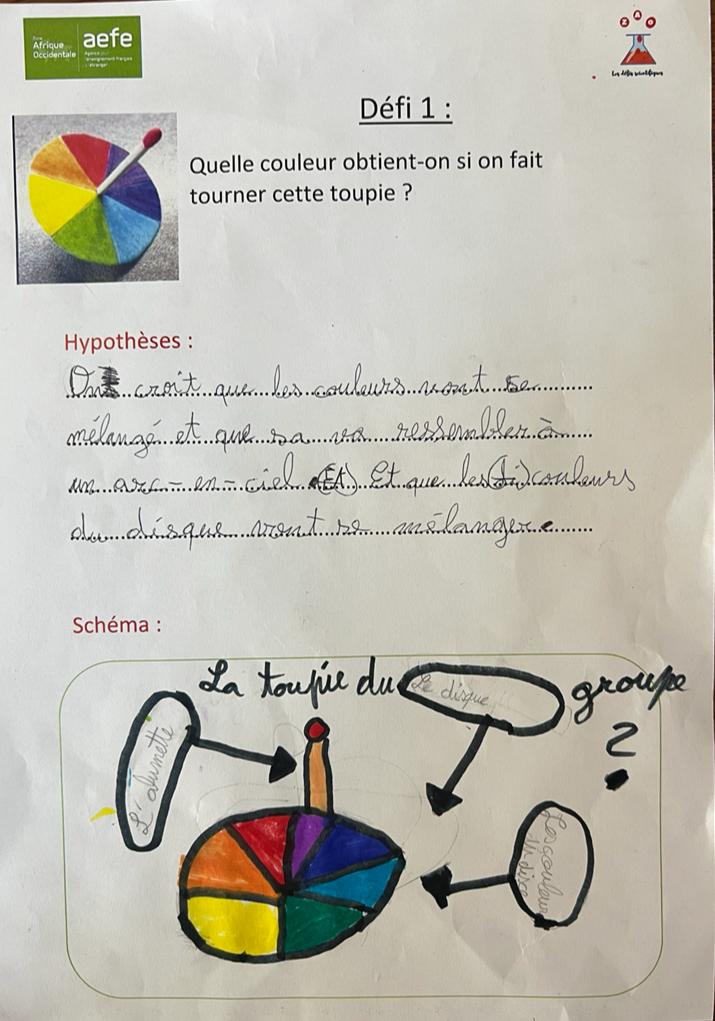 Zone
Afrique
Occidentale
aefe
Agence pour
l'enseignement français
à l'étranger
ZAO
Les défis scientifiques
Défi 1 :
Quelle couleur obtient-on si on fait
tourner cette toupie ?
Hypothèses :
On croit que les couleurs vont se
mélangé et que sa va ressembler à
un arc-en-ciel (Et) Et que les (di) couleurs
du disque vont se mélanger.
Schéma :
La toupie du groupe 2
Le disque
L'alumette
Les couleur